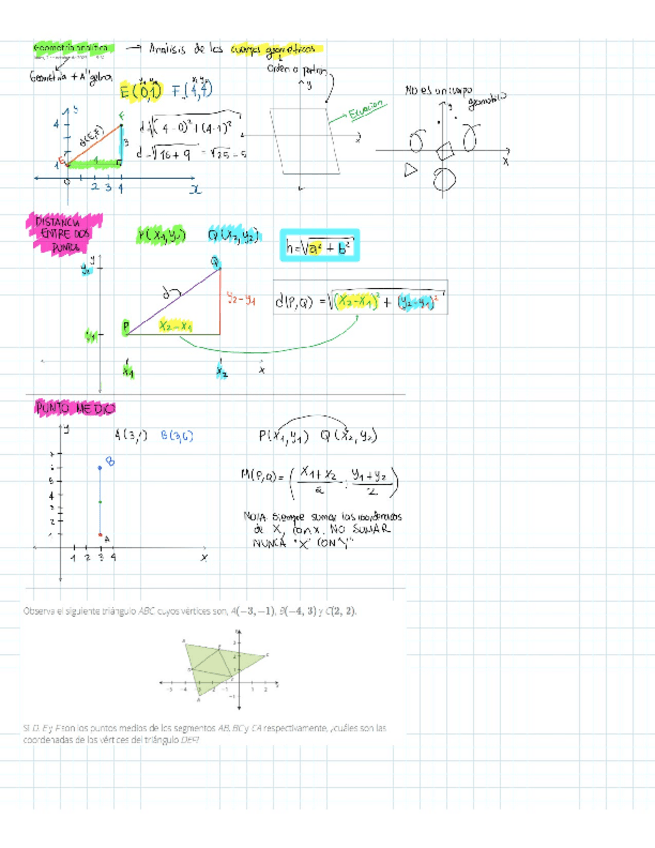 Geometría analítica → Análisis de los cuerpos geométricos
Geometría + Álgebra
Orden o patrón
E(0,1) F(4,4)
Ecuación
No es un cuerpo
geométrico
d(E,F)
d=√(4-0)²+(4-1)²
d=√16+9 = √25=5
DISTANCIA
ENTRE DOS
PUNTOS
P(x₁,y₁) Q(x₂,y₂)
h=√a²+b²
d(P,Q) = √(x₂-x₁)² + (y₂-y₁)²
y₂-y₁
x₂-x₁
PUNTO MEDIO
A(3,1) B(3,6)
P(x₁,y₁) Q(x₂,y₂)
M(P,Q) = (x₁+x₂/2 ; y₁+y₂/2)
NOTA siempre sumar las coordenadas
de X, con x. NO SUMAR
NUNCA "X" CON "Y"
Observa el siguiente triángulo ABC cuyos vértices son, A(−3, −1), B(−4, 3) y C(2, 2).
Si D, E y F son los puntos medios de los segmentos AB, BC y CA respectivamente, ¿cuáles son las
coordenadas de los vértices del triángulo DEF?